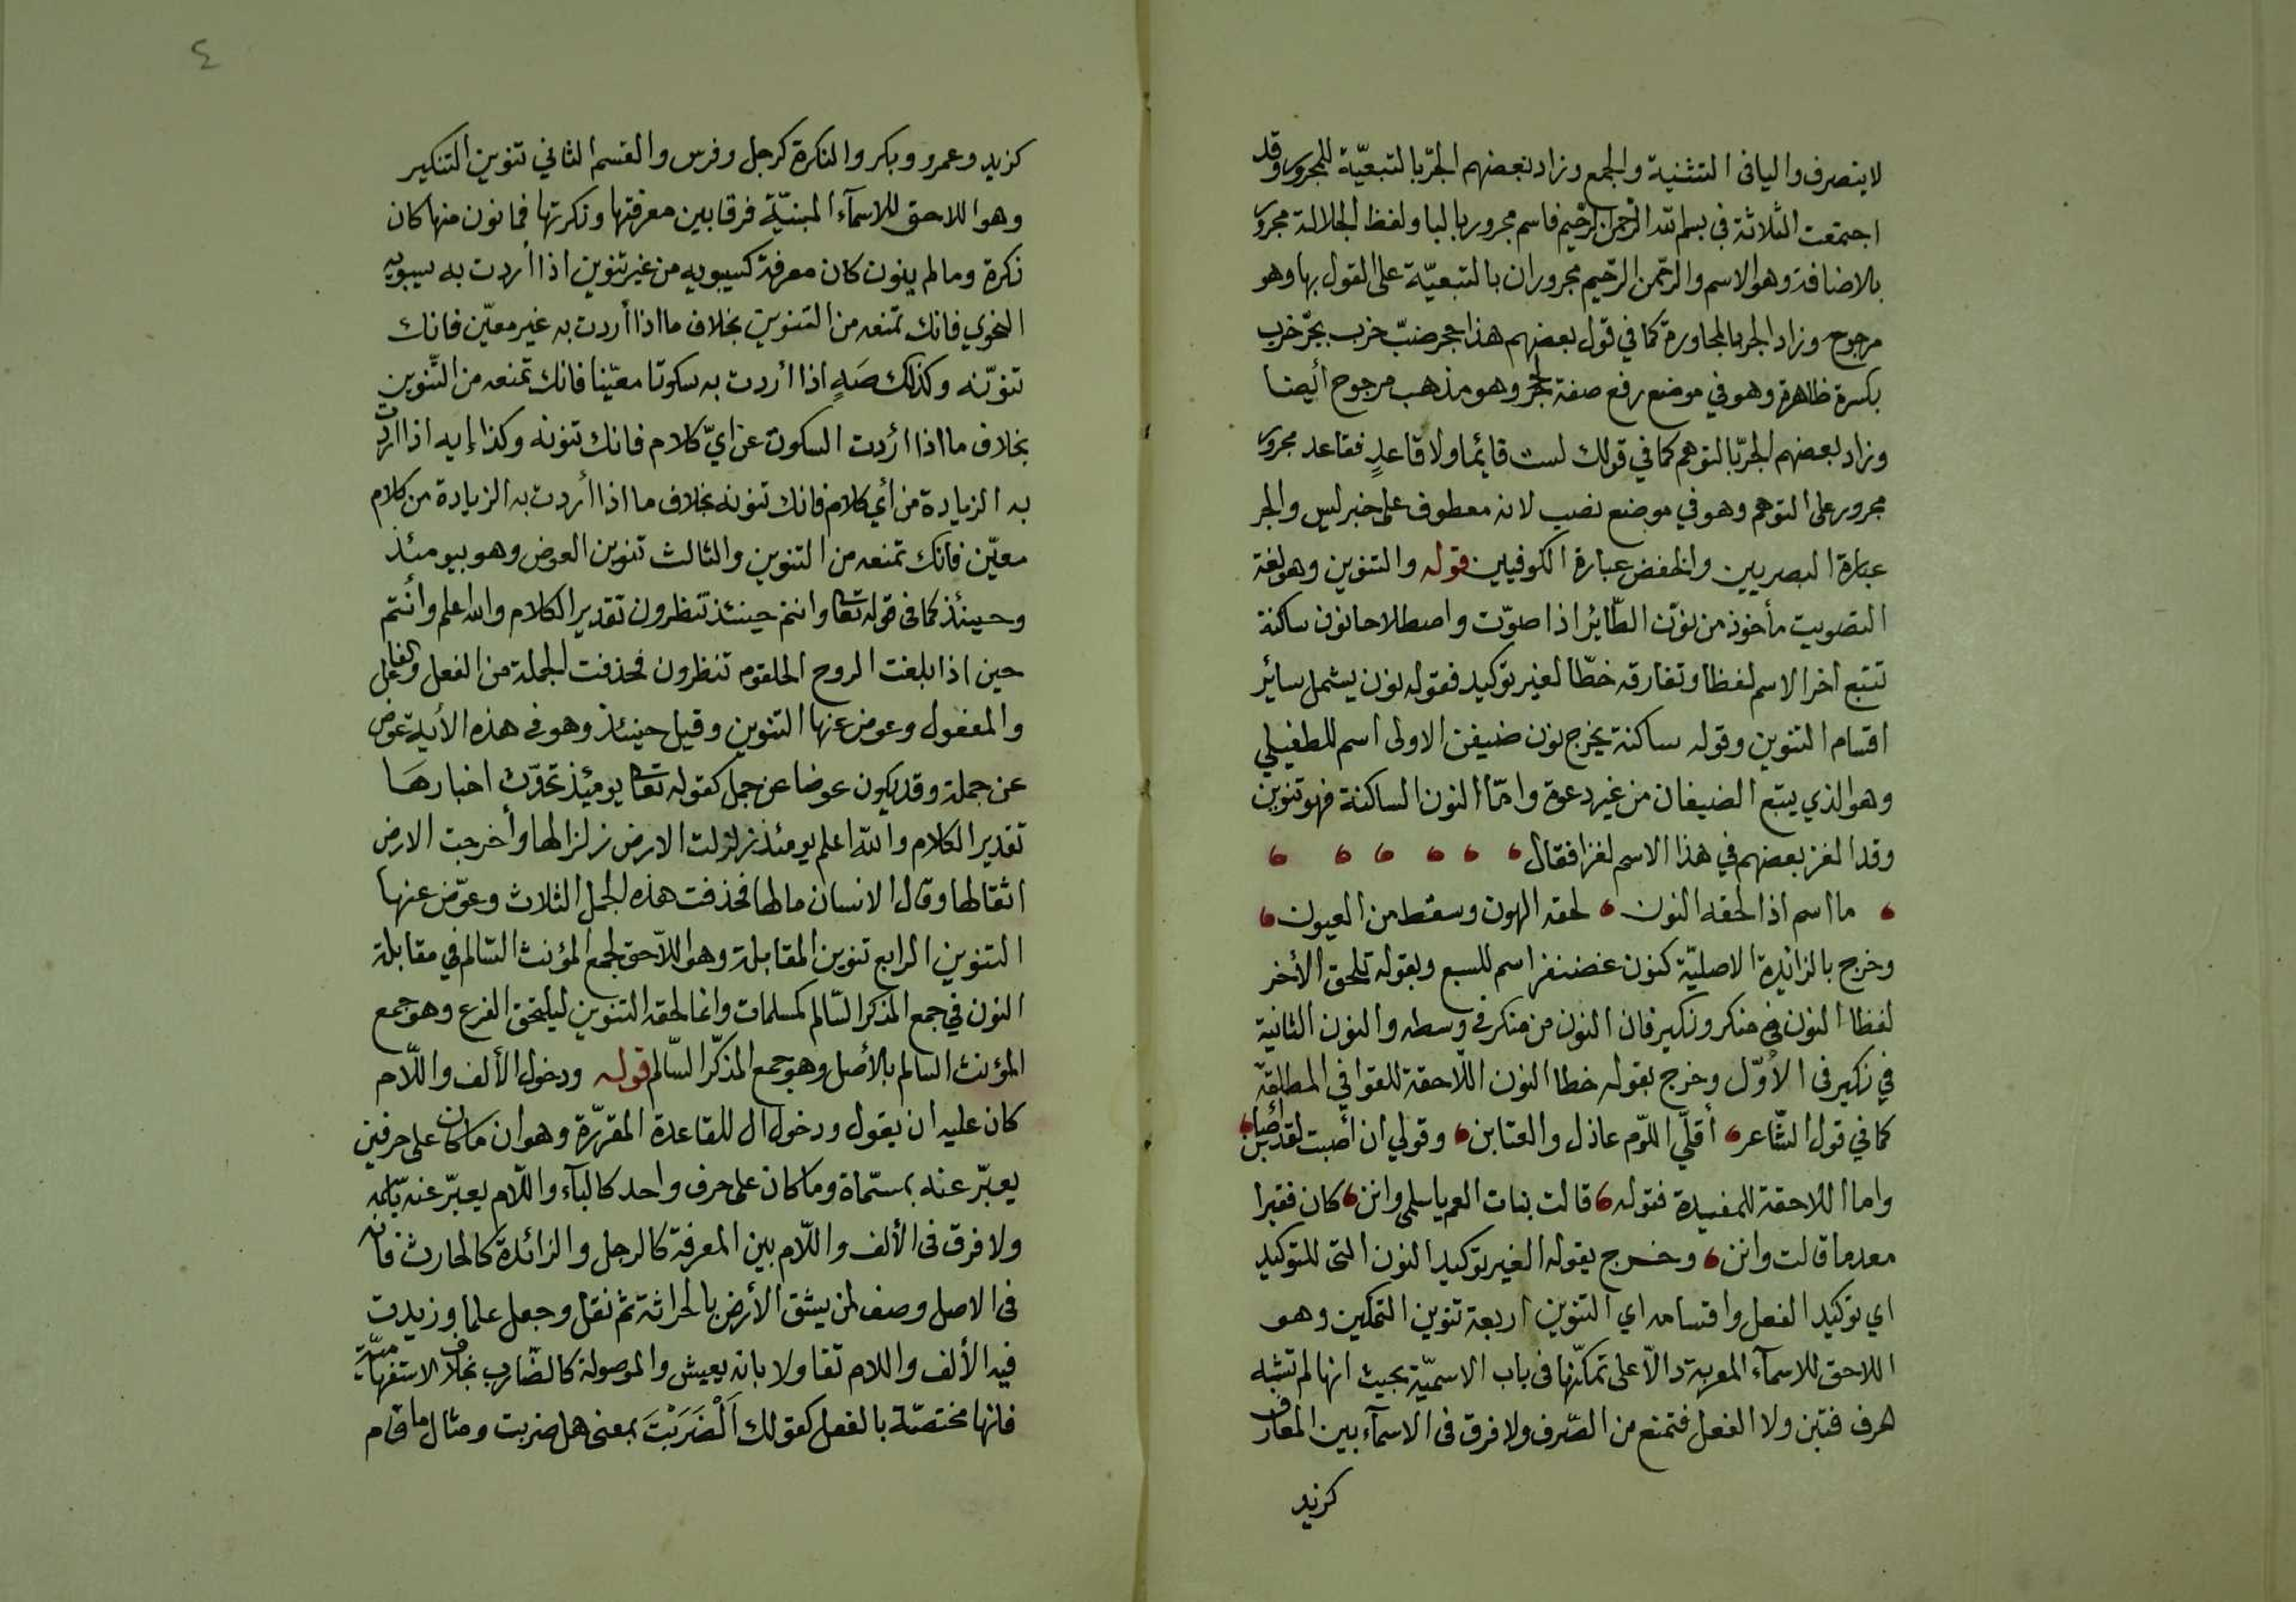 لا ينصرف واليا فى التثنية والجمع وزاد بعضهم الجرّ بالتبعيّة للمجرور وقد
اجتمعت الثلاثة في بسم الله الرحمن الرحيم فاسم مجرور بالبا ولفظ الجلالة مجرور
بالاضافة وهو الاسم والرحمن الرحيم مجروران بالتبعيّة على القول بها وهو
مرجوح وزاد الجر بالمجاورة كما في قول بعضهم هذا حجر ضبّ خرب بجرّ خرب
بكسرة ظاهرة وهو في موضع رفع صفة لجحر وهو مذهب مرجوح أيضا
وزاد بعضهم الجرّ بالتوهم كما في قولك لست قائما ولا قاعدٍ فقاعد مجرور
مجرور على التوهم وهو في موضع نصب لانه معطوف على خبر ليس والجر
عبارة البصريين والخفض عبارة الكوفيين قوله والتنوين وهو لغة
التصويت مأخوذ من نوّن الطّائر اذا صوّت واصطلاحا نون ساكنة
تتبع اخر الاسم لفظا وتفارقه خطّا لغير توكيد فقوله نون يشمل سائر
اقسام التنوين وقوله ساكنة يخرج نون ضيفن الاولى اسم للطفيلي
وهو الذي يتبع الضيفان من غير دعوة وامّا النون الساكنة فهو تنوين
وقد الغز بعضهم في هذا الاسم لغزا فقال
ما اسم اذا لحقه النون لحقه الهون وسقط من العيون
وخرج بالزائدة الاصليّة كنون غضنفر اسم للسبع وبقوله تلحق الأخر
لفظا النون في منكر ونكير فان النون من منكر في وسطه والنون الثانية
في نكير فى الأوّل وخرج بقوله خطا النون اللّاحقة للقوافي المطلقة
كما في قول الشّاعر أقلّي اللّوم عاذل والعتابن وقولي ان أصبت لقد أصابن
واما اللاحقة للمقيدة فقوله قالت بنات العم يا سلمى وانن كان فقيرا
معدما قالت وانن وخرج بقوله لغير توكيد النون التى للتوكيد
اي توكيد الفعل واقسامه اي التنوين اربعة تنوين التمكين وهو
اللاحق للاسمآء المعربة دالّا على تمكّنها فى باب الاسميّة بحيث انها لم تشبه
الحرف فتبن ولا الفعل فتمنع من الصّرف ولا فرق فى الاسمآء بين المعارف
كزيد
٤
كزيد وعمرو وبكر والنكرة كرجل وفرس والقسم الثاني تنوين التنكير
وهو اللاحق للاسمآء المبنيّة فرقا بين معرفتها ونكرتها فما نون منها كان
نكرة وما لم ينون كان معرفة كسيبويه من غير تنوين اذا أردت به سيبويه
النحوي فانك تمنعه من التنوين بخلاف ما اذا أردت به غير معيّن فانك
تنوّنه وكذلك صَهٍ اذا أردت به سكوتا معيّنا فانك تمنعه من التّنوين
بخلاف ما اذا أردت السكوت عن ايّ كلام فانك تنونه وكذا إيه اذا اردت
به الزيادة من أي كلام فانك تنونه بخلاف ما اذا أردت به الزيادة من كلام
معيّن فانك تمنعه من التنوين والثالث تنوين العوض وهو بيومئذ
وحينئذ كما فى قوله تعا وانتم حينئذ تنظرون تقدير الكلام والله اعلم وأنتم
حين اذا بلغت الروح الحلقوم تنظرون فحذفت الجملة من الفعل والفاعل
والمفعول وعوض عنها التنوين وقيل حينئذ وهو في هذه الأية عوض
عن جملة وقد يكون عوضا عن جمل كقوله تعا يومئذ تحدّث اخبارهَا
تقدير الكلام والله اعلم يومئذ زلزلت الارض زلزالها وأخرجت الارض
اثقالها وقال الانسان مالها فحذفت هذه الجمل الثلاث وعوّض عنها
التنوين الرابع تنوين المقابلة وهو اللاّحق لجمع المؤنث السّالم في مقابلة
النون في جمع المذكر السّالم كمسلمات وانما لحقه التنوين ليلتحق الفرع وهو جمع
المؤنث السالم بالأصل وهو جمع المذكّر السّالم قوله ودخول الألف واللّام
كان عليه ان يقول ودخول ال للقاعدة المقرّرة وهو ان ما كان على حرفين
يعبّر عنه بمسمّاة وما كان على حرف واحد كالبآء واللّام يعبّر عنه باسمه
ولا فرق فى الألف واللّام بين المعرفة كالرجل والزائدة كالحارث فانه
فى الاصل وصف لمن يشق الأرض بالحراثة ثم نقل وجعل علما وزيدت
فيه الألف واللام تفاولا بانه يعيش والموصولة كالضّارب بخلاف الاستفهاميّة
فانها مختصّة بالفعل كقولك اَلْضَرَبْتَ بمعنى هل ضربت ومثال ما قام